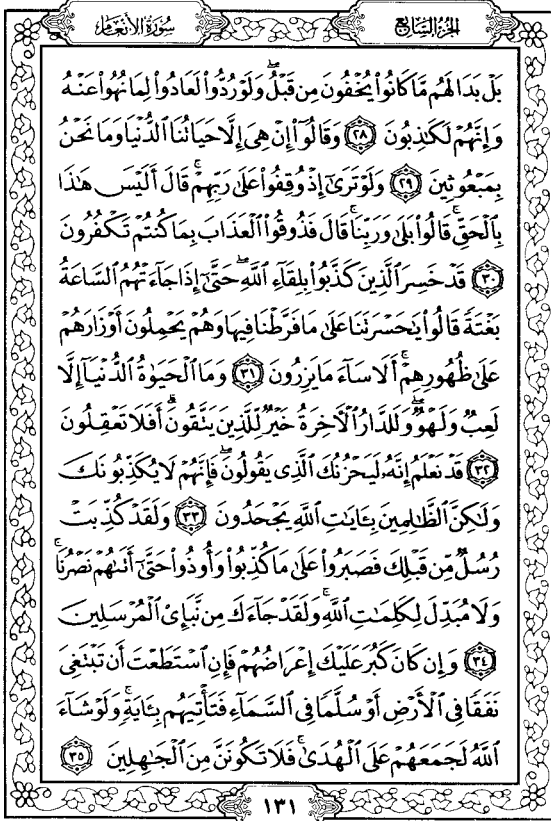 سُورَةُ الأَنْعَامِ
الجُزْءُ السَّابِعُ
بَلْ بَدَا لَهُم مَّا كَانُوا۟ يُخْفُونَ مِن قَبْلُ ۖ وَلَوْ رُدُّوا۟ لَعَادُوا۟ لِمَا نُهُوا۟ عَنْهُ
وَإِنَّهُمْ لَكَٰذِبُونَ ٢٨ وَقَالُوٓا۟ إِنْ هِىَ إِلَّا حَيَاتُنَا ٱلدُّنْيَا وَمَا نَحْنُ
بِمَبْعُوثِينَ ٢٩ وَلَوْ تَرَىٰٓ إِذْ وُقِفُوا۟ عَلَىٰ رَبِّهِمْ ۚ قَالَ أَلَيْسَ هَٰذَا
بِٱلْحَقِّ ۚ قَالُوا۟ بَلَىٰ وَرَبِّنَا ۚ قَالَ فَذُوقُوا۟ ٱلْعَذَابَ بِمَا كُنتُمْ تَكْفُرُونَ
٣٠ قَدْ خَسِرَ ٱلَّذِينَ كَذَّبُوا۟ بِلِقَآءِ ٱللَّهِ ۖ حَتَّىٰٓ إِذَا جَآءَتْهُمُ ٱلسَّاعَةُ
بَغْتَةً قَالُوا۟ يَٰحَسْرَتَنَا عَلَىٰ مَا فَرَّطْنَا فِيهَا وَهُمْ يَحْمِلُونَ أَوْزَارَهُمْ
عَلَىٰ ظُهُورِهِمْ ۚ أَلَا سَآءَ مَا يَزِرُونَ ٣١ وَمَا ٱلْحَيَوٰةُ ٱلدُّنْيَآ إِلَّا
لَعِبٌ وَلَهْوٌ ۖ وَلَلدَّارُ ٱلْـَٔاخِرَةُ خَيْرٌ لِّلَّذِينَ يَتَّقُونَ ۗ أَفَلَا تَعْقِلُونَ
٣٢ قَدْ نَعْلَمُ إِنَّهُۥ لَيَحْزُنُكَ ٱلَّذِى يَقُولُونَ ۖ فَإِنَّهُمْ لَا يُكَذِّبُونَكَ
وَلَٰكِنَّ ٱلظَّٰلِمِينَ بِـَٔايَٰتِ ٱللَّهِ يَجْحَدُونَ ٣٣ وَلَقَدْ كُذِّبَتْ
رُسُلٌ مِّن قَبْلِكَ فَصَبَرُوا۟ عَلَىٰ مَا كُذِّبُوا۟ وَأُوذُوا۟ حَتَّىٰٓ أَتَىٰهُمْ نَصْرُنَا ۚ
وَلَا مُبَدِّلَ لِكَلِمَٰتِ ٱللَّهِ ۚ وَلَقَدْ جَآءَكَ مِن نَّبَإِى۟ ٱلْمُرْسَلِينَ
٣٤ وَإِن كَانَ كَبُرَ عَلَيْكَ إِعْرَاضُهُمْ فَإِنِ ٱسْتَطَعْتَ أَن تَبْتَغِىَ
نَفَقًا فِى ٱلْأَرْضِ أَوْ سُلَّمًا فِى ٱلسَّمَآءِ فَتَأْتِيَهُم بِـَٔايَةٍ ۚ وَلَوْ شَآءَ
ٱللَّهُ لَجَمَعَهُمْ عَلَى ٱلْهُدَىٰ ۚ فَلَا تَكُونَنَّ مِنَ ٱلْجَٰهِلِينَ ٣٥
١٣١